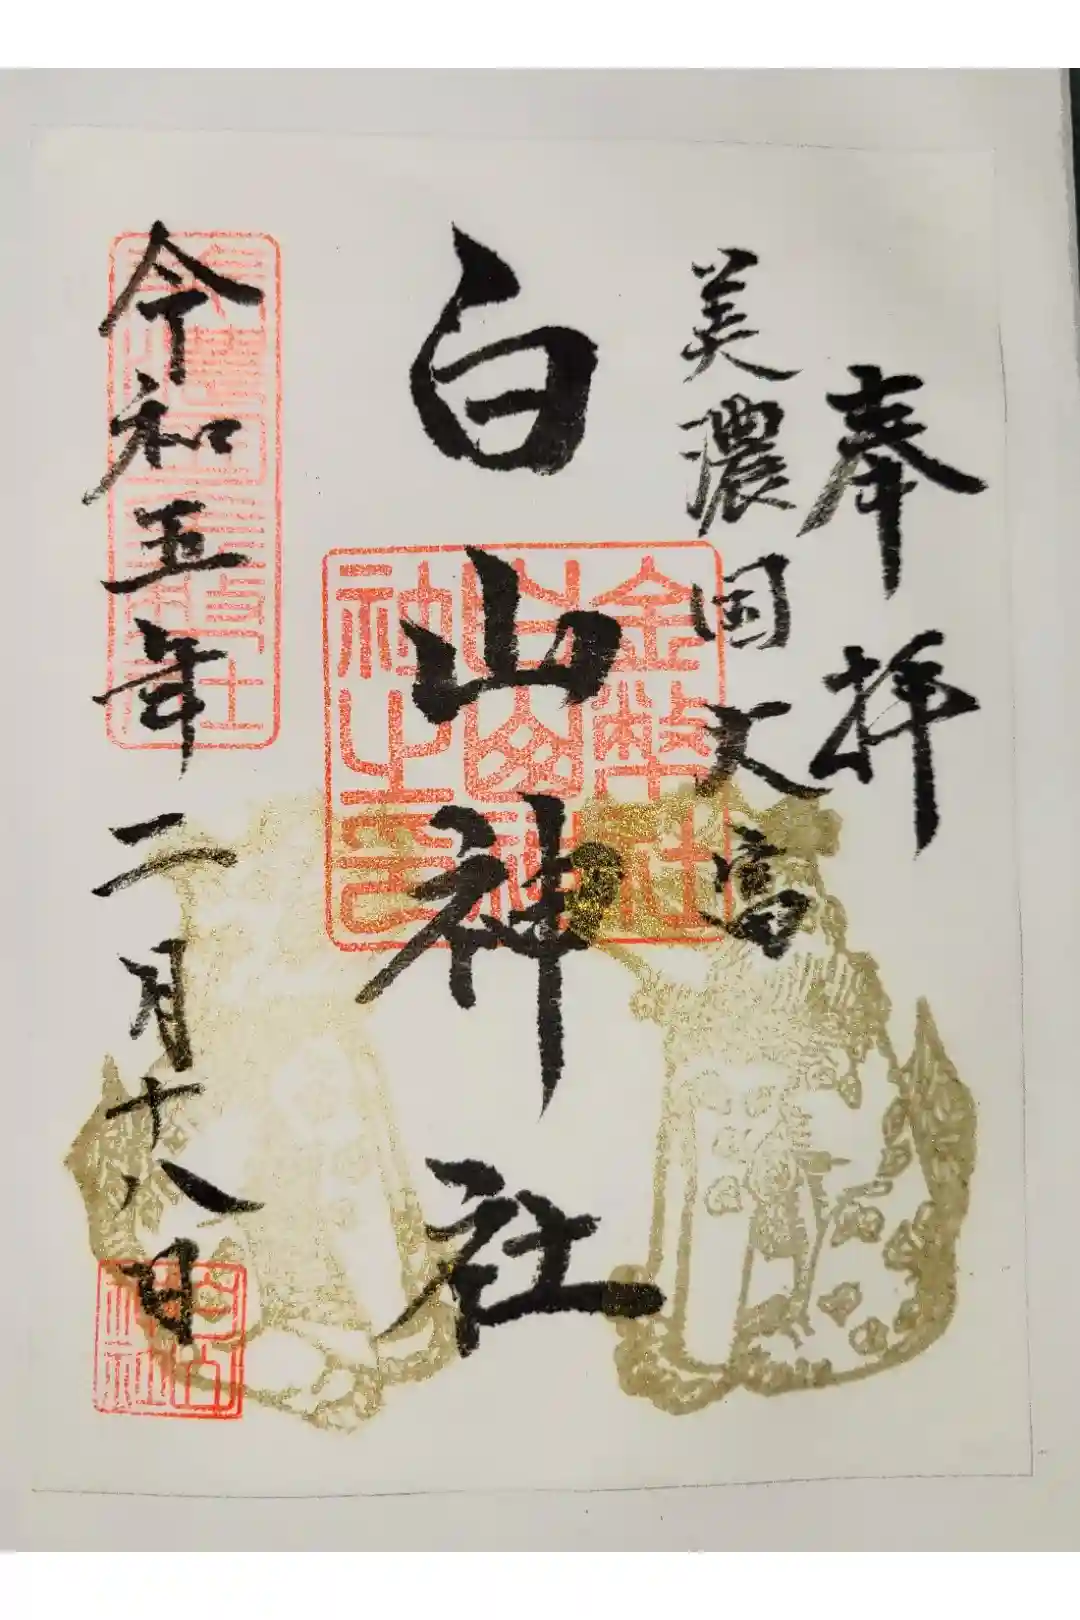 奉拝
美濃国大富
白山神社
金幣社
白山神
社之印
令和五年二月十八日
白山
神社